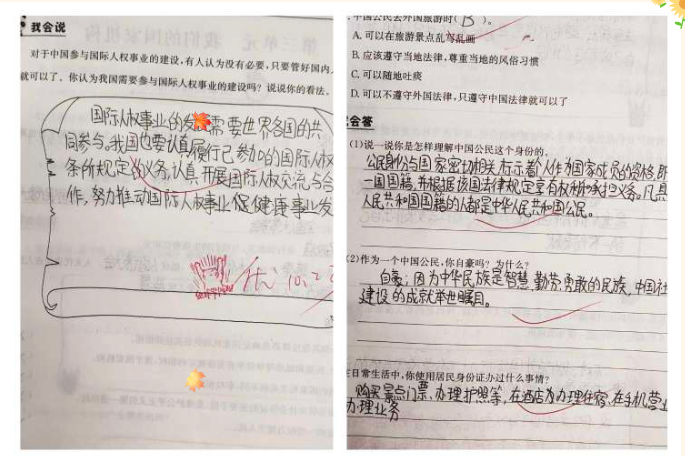 我会说
对于中国参与国际人权事业的建设,有人认为没有必要,只要管好国内
就可以了。你认为我国需要参与国际人权事业的建设吗?说说你的看法。
国际人权事业的发 需要世界各国的共
同参与。我国也要认真履行己参加的国际人权
条所规定的义务,认真开展国际人权交流与合
作,努力推动国际人权事业促健康事业发
优 10.
中国公民去外国旅游时( B )。
A. 可以在旅游景点乱写乱画
B. 应该遵守当地法律,尊重当地的风俗习惯
C. 可以随地吐痰
D. 可以不遵守外国法律,只遵守中国法律就可以了
会答
(1)说一说你是怎样理解中国公民这个身份的。
公民身份与国家密切相关,标示着个人作为国家成员的资格,即
一国国籍,并根据该国法律规定享有权利和承担义务。凡具
人民共和国国籍的人都是中华人民共和国公民。
(2)作为一个中国公民,你自豪吗?为什么?
自豪;因为中华民族是智慧、勤劳、勇敢的民族,中国社
建设的成就举世瞩目。
日常生活中,你使用居民身份证办过什么事情?
购买景点门票、办理护照等,在酒店办理住宿,在手机营业
办理业务